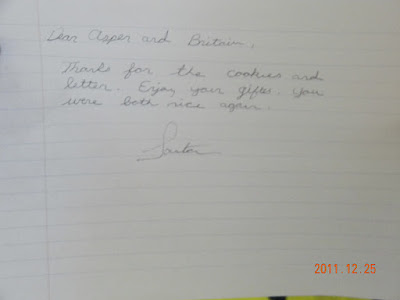 Dear Asper and Britain,
Thanks for the cookies and
letter. Enjoy your gifts. You
were both nice again.
Santa
2011.12.25